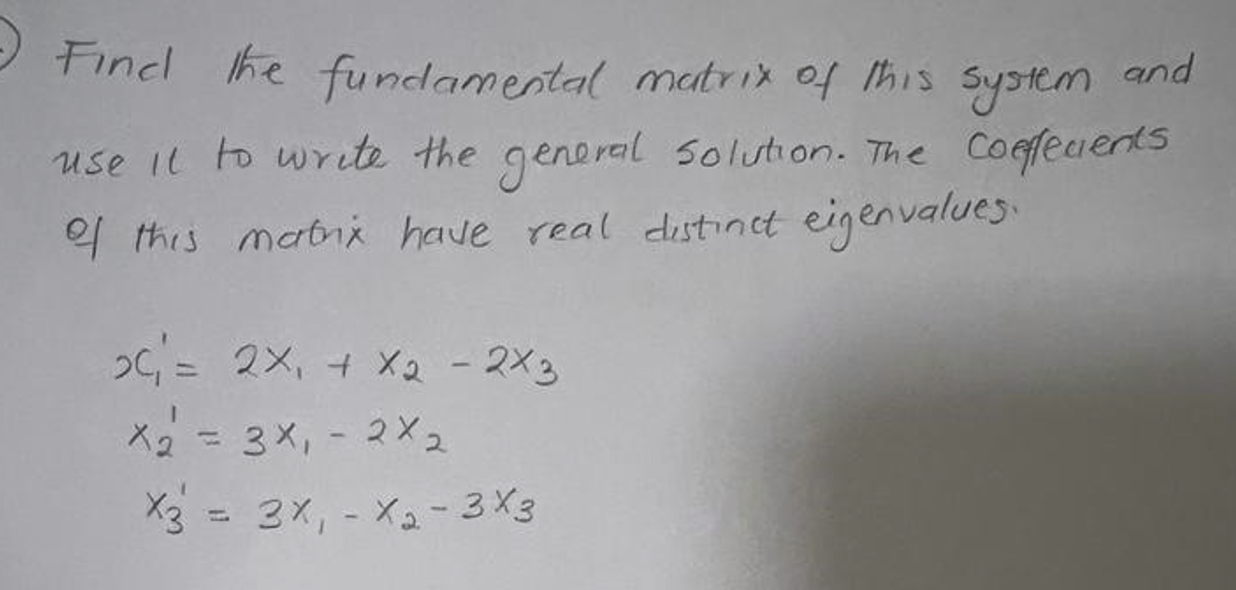 Find the fundamental matrix of this system and
use it to write the general solution. The Coeffecients
of this matrix have real distinct eigenvalues.
x₁' = 2x₁ + x₂ - 2x₃
x₂' = 3x₁ - 2x₂
x₃' = 3x₁ - x₂ - 3x₃